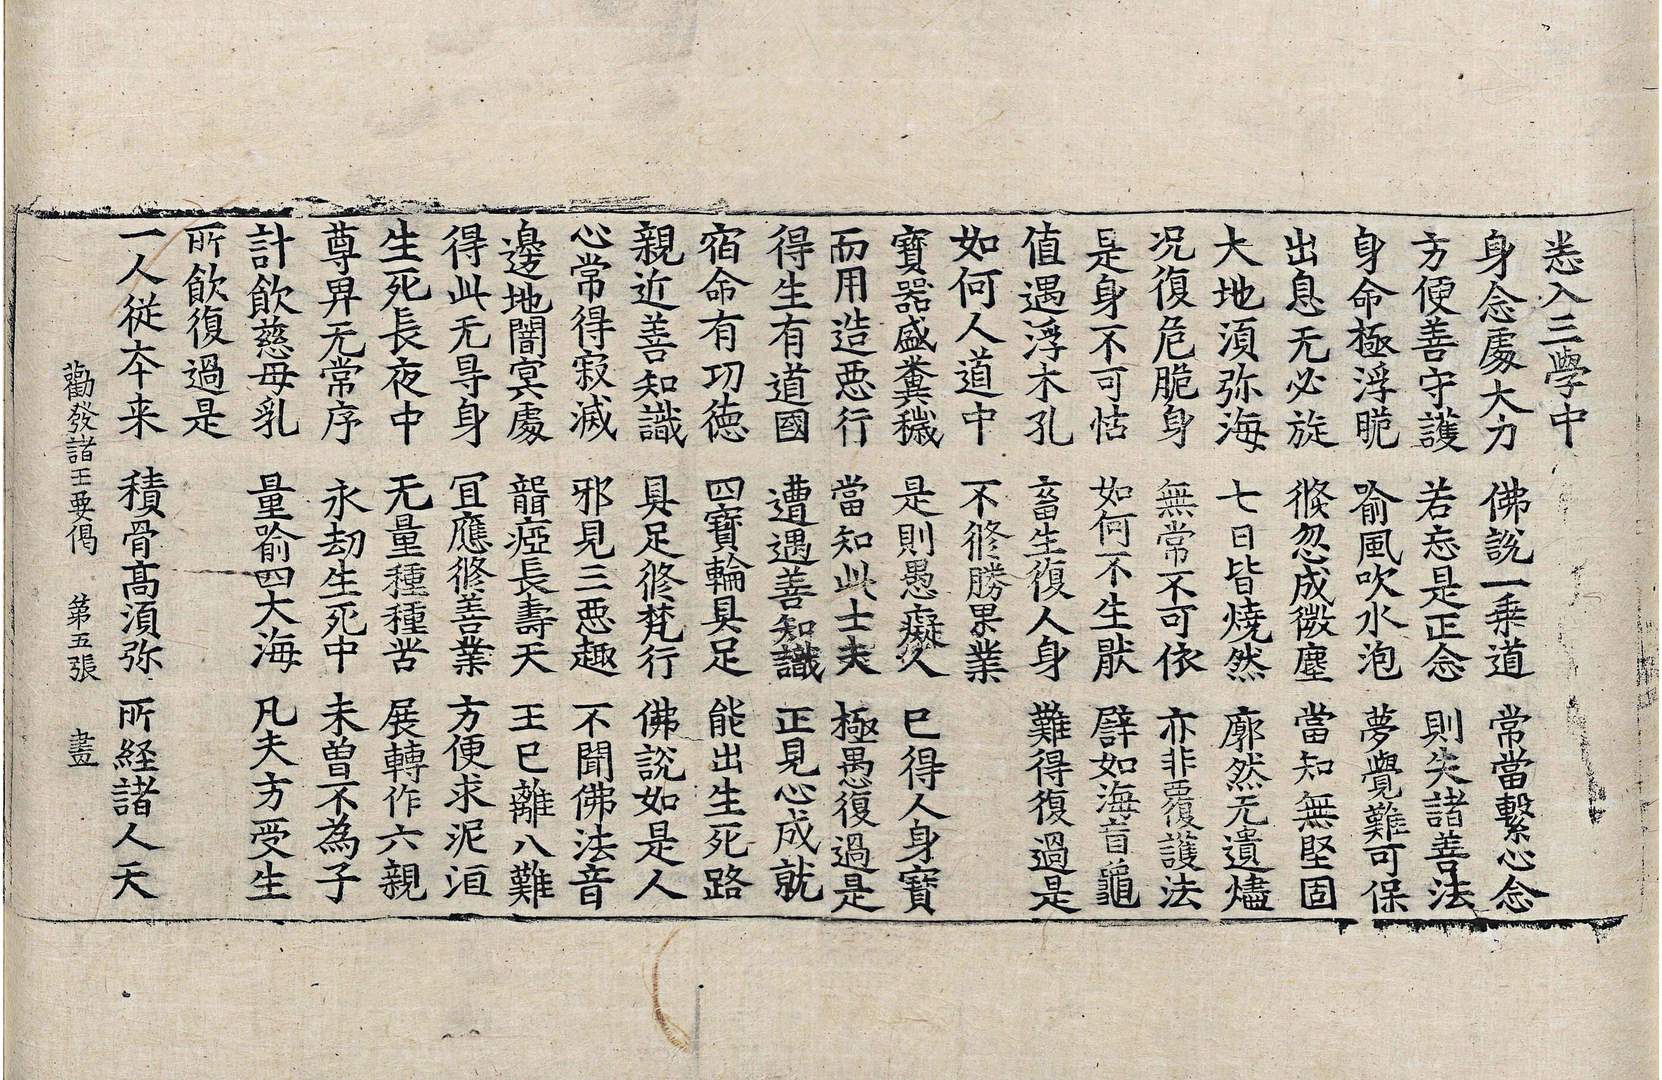 悉入三學中
身念處大力　佛說一乗道　常當繫心念
方便善守護　若忘是正念　則失諸善法
身命極浮脆　喻風吹水泡　夢覺難可保
出息无必旋　倐忽成微塵　當知無堅固
大地湏弥海　七日皆燒然　廓然无遺燼
况復危脆身　無常不可依　亦非覆護法
是身不可怙　如何不生猒　譬如海盲龜
值遇浮木孔　畜生復人身　難得復過是
如何人道中　不修勝果業
寶器盛糞穢　是則愚癡人　已得人身寶
而用造惡行　當知此士夫　極愚復過是
得生有道國　遭遇善知識　正見心成就
宿命有功徳　四寶輪具足　能出生死路
親近善知識　具足修梵行　佛說如是人
心常得寂滅　邪見三惡趣　不聞佛法音
邊地闇冥處　聾瘂長壽天　王已離八難
得此无㝵身　冝應修善業　方便求泥洹
生死長夜中　无量種種苦　展轉作六親
尊昇无常序　永劫生死中　未曽不為子
計飲慈母乳　量喻四大海　凡夫方受生
所飲復過是
一人従夲来　積骨高湏弥　所経諸人天
勸發諸王要偈　第五張　盡